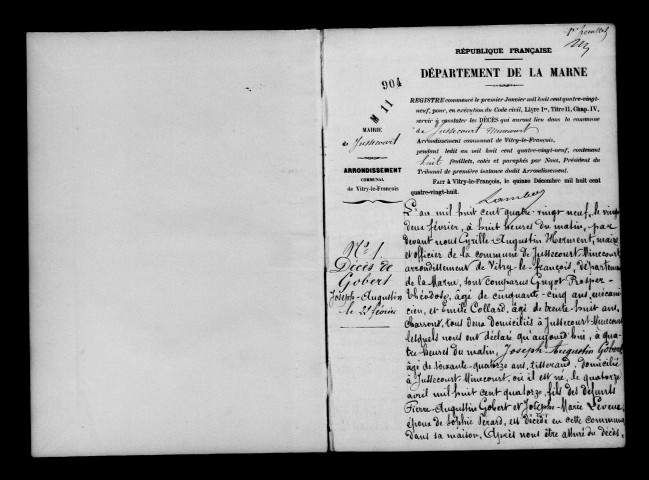 1er feuillet
RÉPUBLIQUE FRANÇAISE
DÉPARTEMENT DE LA MARNE
904
M 11
MAIRIE
de Jussecourt
ARRONDISSEMENT
COMMUNAL
de Vitry-le-François
REGISTRE commencé le premier Janvier mil huit cent quatre-vingt-
neuf, pour, en exécution du Code civil, Livre Ier, Titre II, Chap. IV,
servir à constater les DÉCÈS qui auront lieu dans la commune
de Jussecourt Minecourt
Arrondissement communal de Vitry-le-François,
pendant ledit an mil huit cent quatre-vingt-neuf, contenant
huit feuillets, cotés et paraphés par Nous, Président du
Tribunal de première instance dudit Arrondissement.
FAIT à Vitry-le-François, le quinze Décembre mil huit cent
quatre-vingt-huit.
No 1
Décès de
Gobert
Joseph-Augustin
le 22 février
L'an mil huit cent quatre-vingt neuf, le vingt
deux février, à huit heures du matin, par
devant nous Cyrille Augustin Herment, maire
et officier de la commune de Jussecourt-Minecourt
arrondissement de Vitry-le-françois, département
de la Marne, sont comparus Guyot Prosper-
théodore, âgé de cinquante-cinq ans, mécani-
cien, et Emile Collard, âgé de trente-huit ans,
charron, tous deux domiciliés à Jussecourt-Minecourt
lesquels nous ont déclaré qu'aujourd'hui, à qua-
tre heures du matin, Joseph Augustin Gobert
âgé de soixante-quatorze ans, tisserand, domicilié
à Jussecourt-Minecourt, où il est né, le quatorze
avril mil huit cent quatorze, fils des défunts
Pierre-Augustin Gobert et Josèphe-Marie
époux de Sophie Pérard, est décédé en cette commune
dans sa maison. Après nous être assuré du décès,